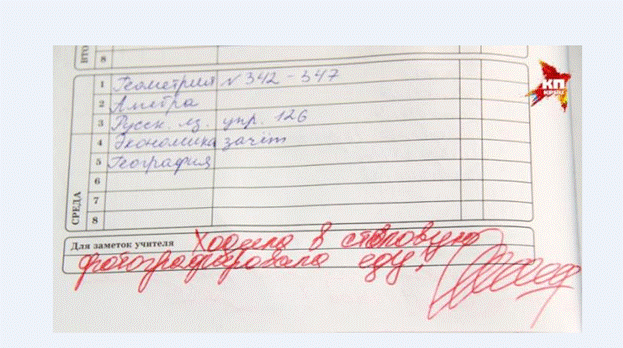 ВТО
8
1 Геометрия № 342 - 347
2 Алгебра
3 Русск. яз. упр. 126
4 Экономика зачёт
5 География
6
7
8
СРЕДА
Для заметок учителя Ходила в столовую
фотографировала еду!
КП